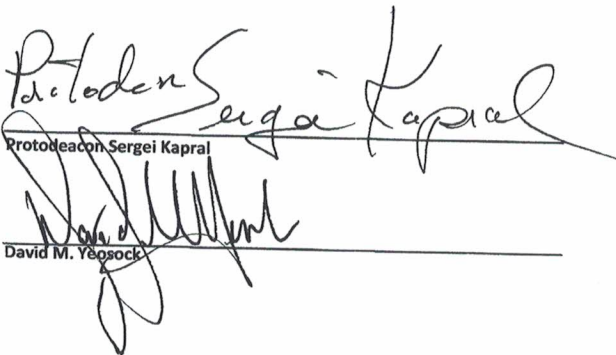 Protodcn Sergei Kapral
Protodeacon Sergei Kapral
David M
David M. Yeosock